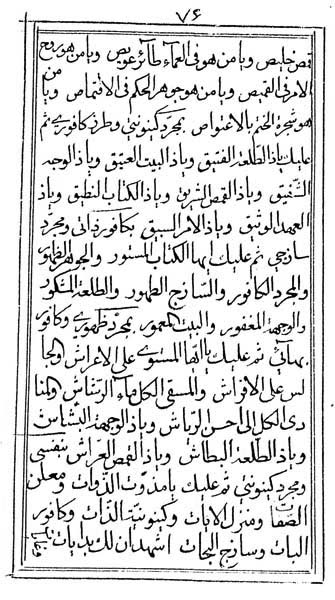 ٧۶
قمص خليص ويا من هو فى العماء طائر عويص ويا من هو روح
الامر فى القميص ويا من هو جوهر الحكم فى الاقتماص ويا من
هو شجرة الختم بالاغتواص بمجرد كينونيتى وطرز كافورى ثم
عليك ياذ الطلعة الفتيق وياذ البيت العتيق وياذ الوجه
الشفيق وياذ القمص الشريق وياذ الكتاب النطيق وياذ
العهد الوثيق وياذ الامر السبيق بكافور ذاتى ومجرد
ساذجى ثم عليك ايها الكتاب المستور والجوهر الظهور
والمجرد الكافور والساذج الطهور والطلعة المشكور
والوجهة المغفور والبيت المعمور بمجرد ظهورى وكافور
بهائى ثم عليك ياايها المستوى على الاعراش والجا
لس على الافراش والمسقى الكل ماء الرشاش والمنا
دى الكل الى احسن الرياش وياذ الوجهة البشاش
وياذ الطلعة البطاش وياذ القمص العراش بنفسى
ومجرد كينونيتى ثم عليك يا مذوت الذوات ومعلن
الصفات ومنزل الايات وكينونية الذات وكافور
البات وساذج البحات اشهد ان لك بدايات